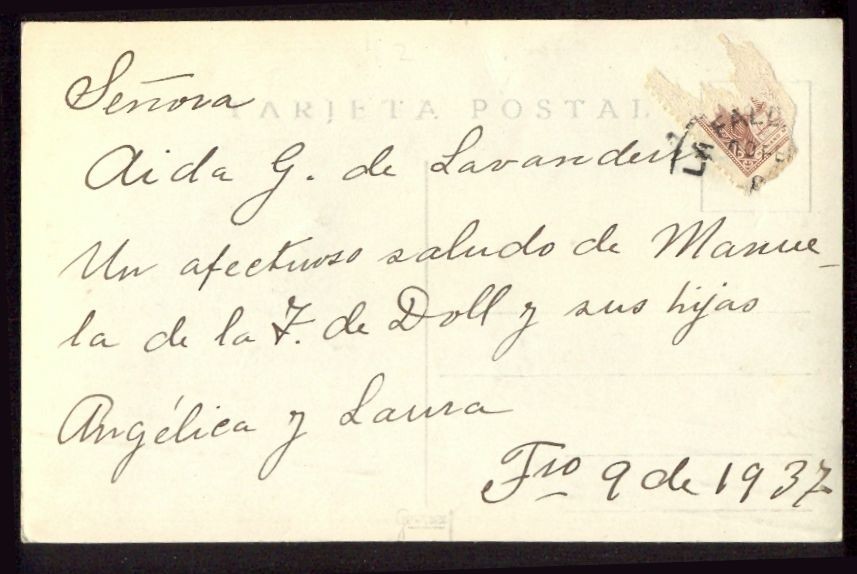 TARJETA POSTAL
Señora
Aida G. de Lavander
LA FALD
Un afectuoso saludo de Manue-
la de la F. de Doll y sus hijas
Angélica y Laura
Fro 9 de 1937